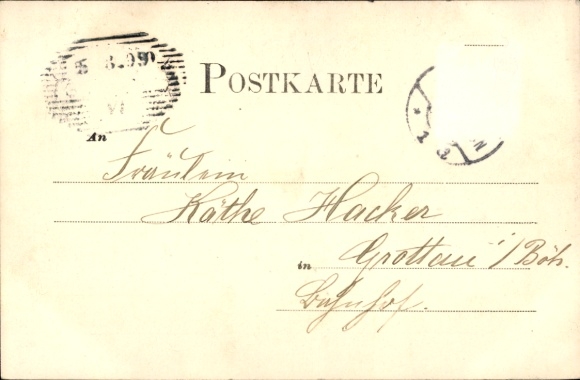 5 3.05
POSTKARTE
An
Fräulein
Käthe Hacker
in Grottau i/Böh.
Bahnhof.